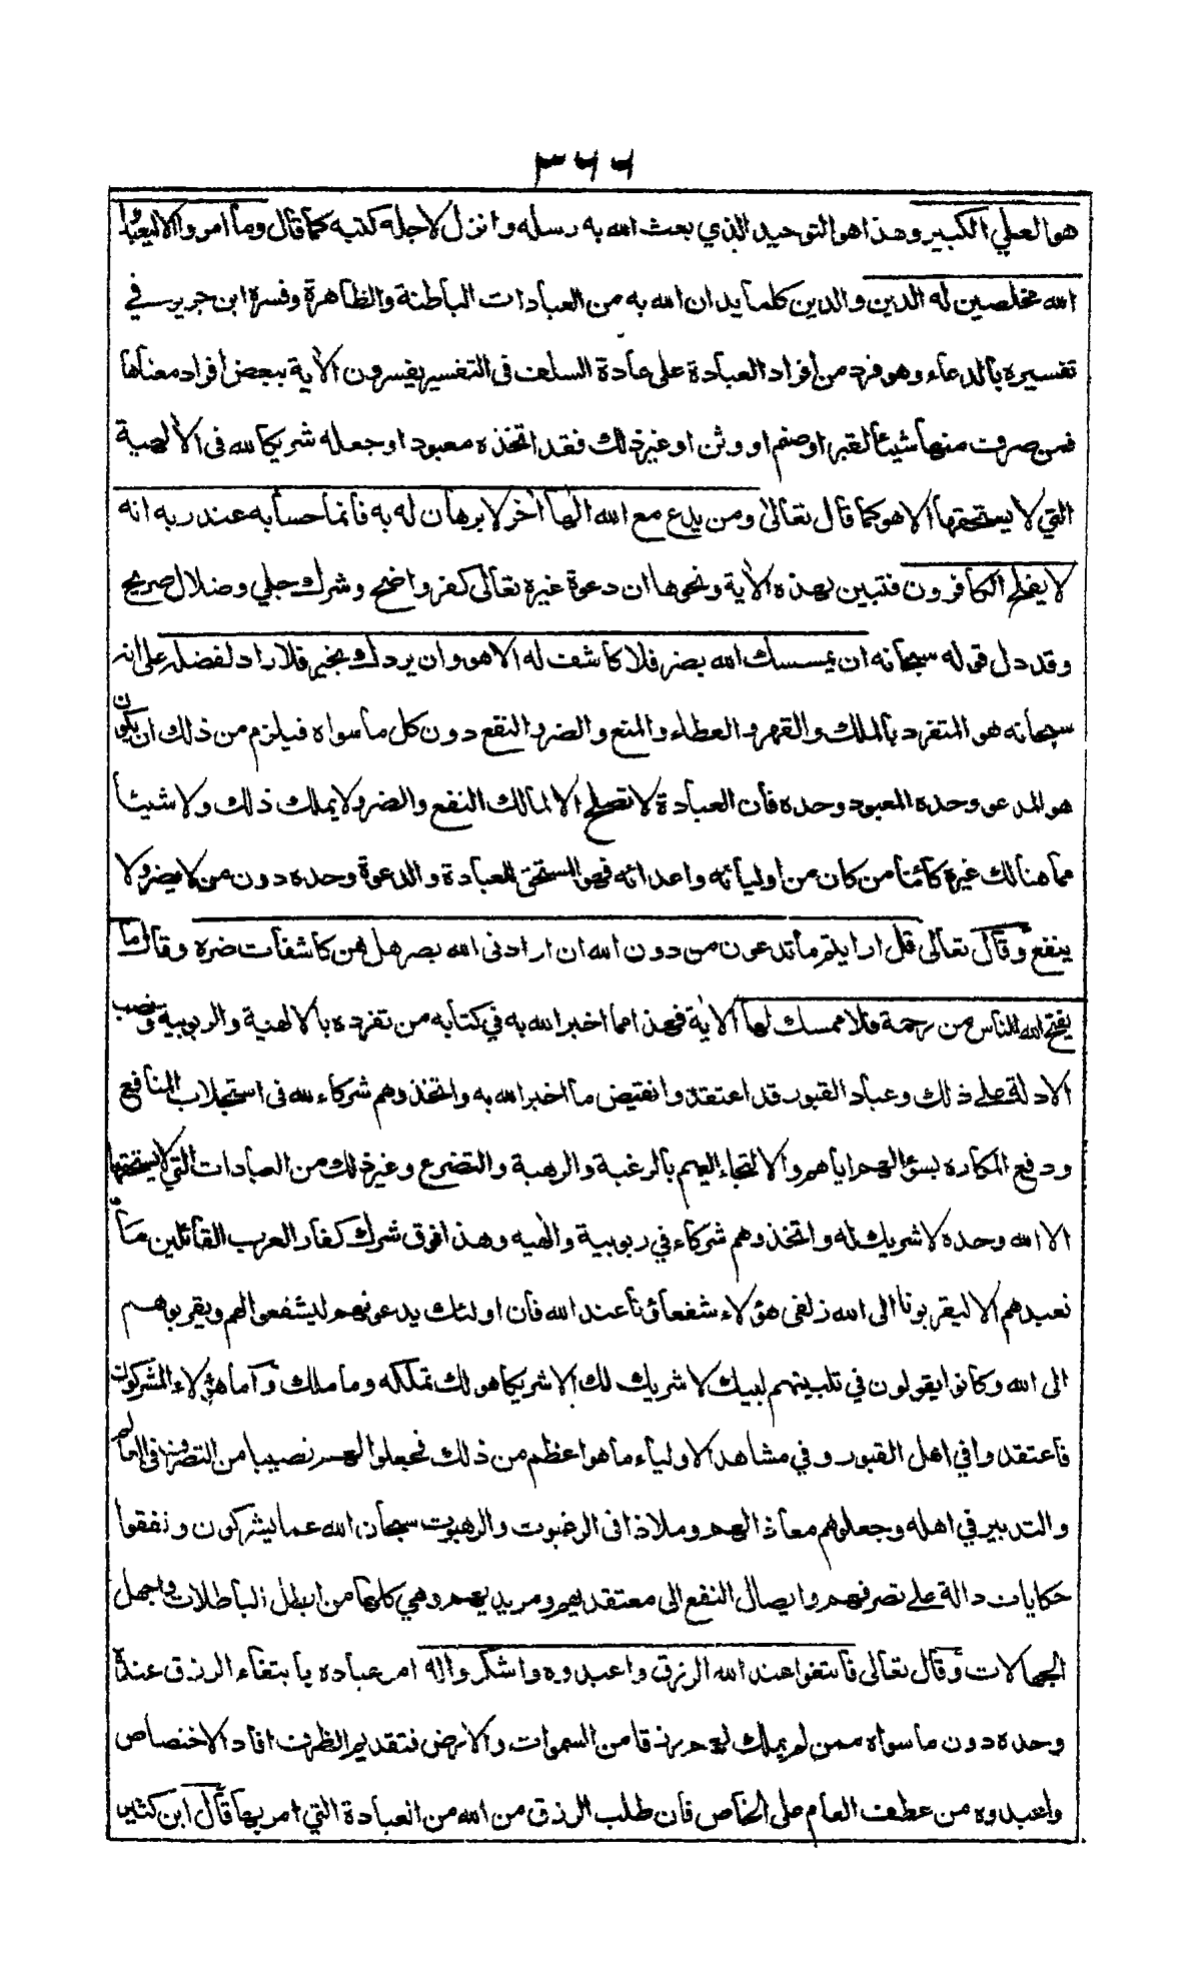 ٣٦٦
هو العلي الكبير وهذا هو التوحيد الذي بعث الله به رسله وانزل لاجله كتبه كما قال وما امروا الا ليعبدوا
الله مخلصين له الدين والدين كلما يدان الله به من العبادات الباطنة والظاهرة وفسرة ابن جرير في
تفسيره بالدعاء وهو فرد من افراد العبادة على عادة السلف في التفسير يفسرون الآية ببعض افراد معناها
فمن صرف منها شيئا لقبر او صنم او وثن او غير ذلك فقد اتخذه معبودا وجعله شريكا لله في الالهية
التي لا يستحقها الا هو كما قال تعالى ومن يدع مع الله الها آخر لا برهان له به فانما حسابه عند ربه انه
لا يفلح الكافرون فتبين بهذه الآية ونحوها ان دعوة غيره تعالى كفر واضح وشرك جلي وضلال صريح
وقد دل قوله سبحانه ان يمسسك الله بضر فلا كاشف له الا هو وان يردك بخير فلا راد لفضله على انه
سبحانه هو المتفرد بالملك والقهر والعطاء والمنع والضر والنفع دون كل ما سواه فيلزم من ذلك ان يكون
هو المدعو وحده المعبود وحده فان العبادة لا تصلح الا لمالك النفع والضر ولا يملك ذلك ولا شيئا
مما هنالك غيره كائنا من كان من اوليائه واعدائه فهو المستحق للعبادة والدعوة وحده دون من لا يضر ولا
ينفع وقال تعالى قل ارايتم ما تدعون من دون الله ان ارادني الله بضر هل هن كاشفات ضره وقال ما
يفتح الله للناس من رحمة فلا ممسك لها الآية فهذا مما اخبر الله به في كتابه من تفرده بالالهية والربوبية ونصب
الادلة على ذلك وعباد القبور قد اعتقدوا نقيض ما اخبر الله به واتخذوهم شركاء لله في استجلاب المنافع
ودفع المكاره بسؤالهم اياهم والالتجاء اليهم بالرغبة والرهبة والتضرع وغير ذلك من العبادات التي لا يستحقها
الا الله وحده لا شريك له واتخذوهم شركاء في ربوبية والهيه وهذا فوق شرك كفار العرب القائلين ما
نعبدهم الا ليقربونا الى الله زلفى هؤلاء شفعاؤنا عند الله فان اولئك يدعونهم ليشفعوا لهم ويقربوهم
الى الله وكانوا يقولون في تلبيتهم لبيك لا شريك لك الا شريكا هو لك تملكه وما ملك وآما هؤلاء المشركون
فاعتقدوا في اهل القبور وفي مشاهد الاولياء ما هو اعظم من ذلك فجعلوا لهم نصيبا من التصرف في العالم
والتدبير في اهله وجعلوهم معاذا لهم وملاذا في الرغبوت والرهبوت سبحان الله عما يشركون ونفقوا
حكايات دالة على تصرفهم وايصال النفع الى معتقديهم ومريديهم وهي كلها من ابطل الباطلات واجهل
الجهالات وقال تعالى فابتغوا عند الله الرزق واعبدوه واشكروا له امر عباده بابتغاء الرزق عنده
وحده دون ما سواه ممن لم يملك لهم رزقا من السموات والارض فتقديم الظرف افاد الاختصاص
واعبدوه من عطف العام على الخاص فان طلب الرزق من الله من العبادة التي امر بها قال ابن كثير